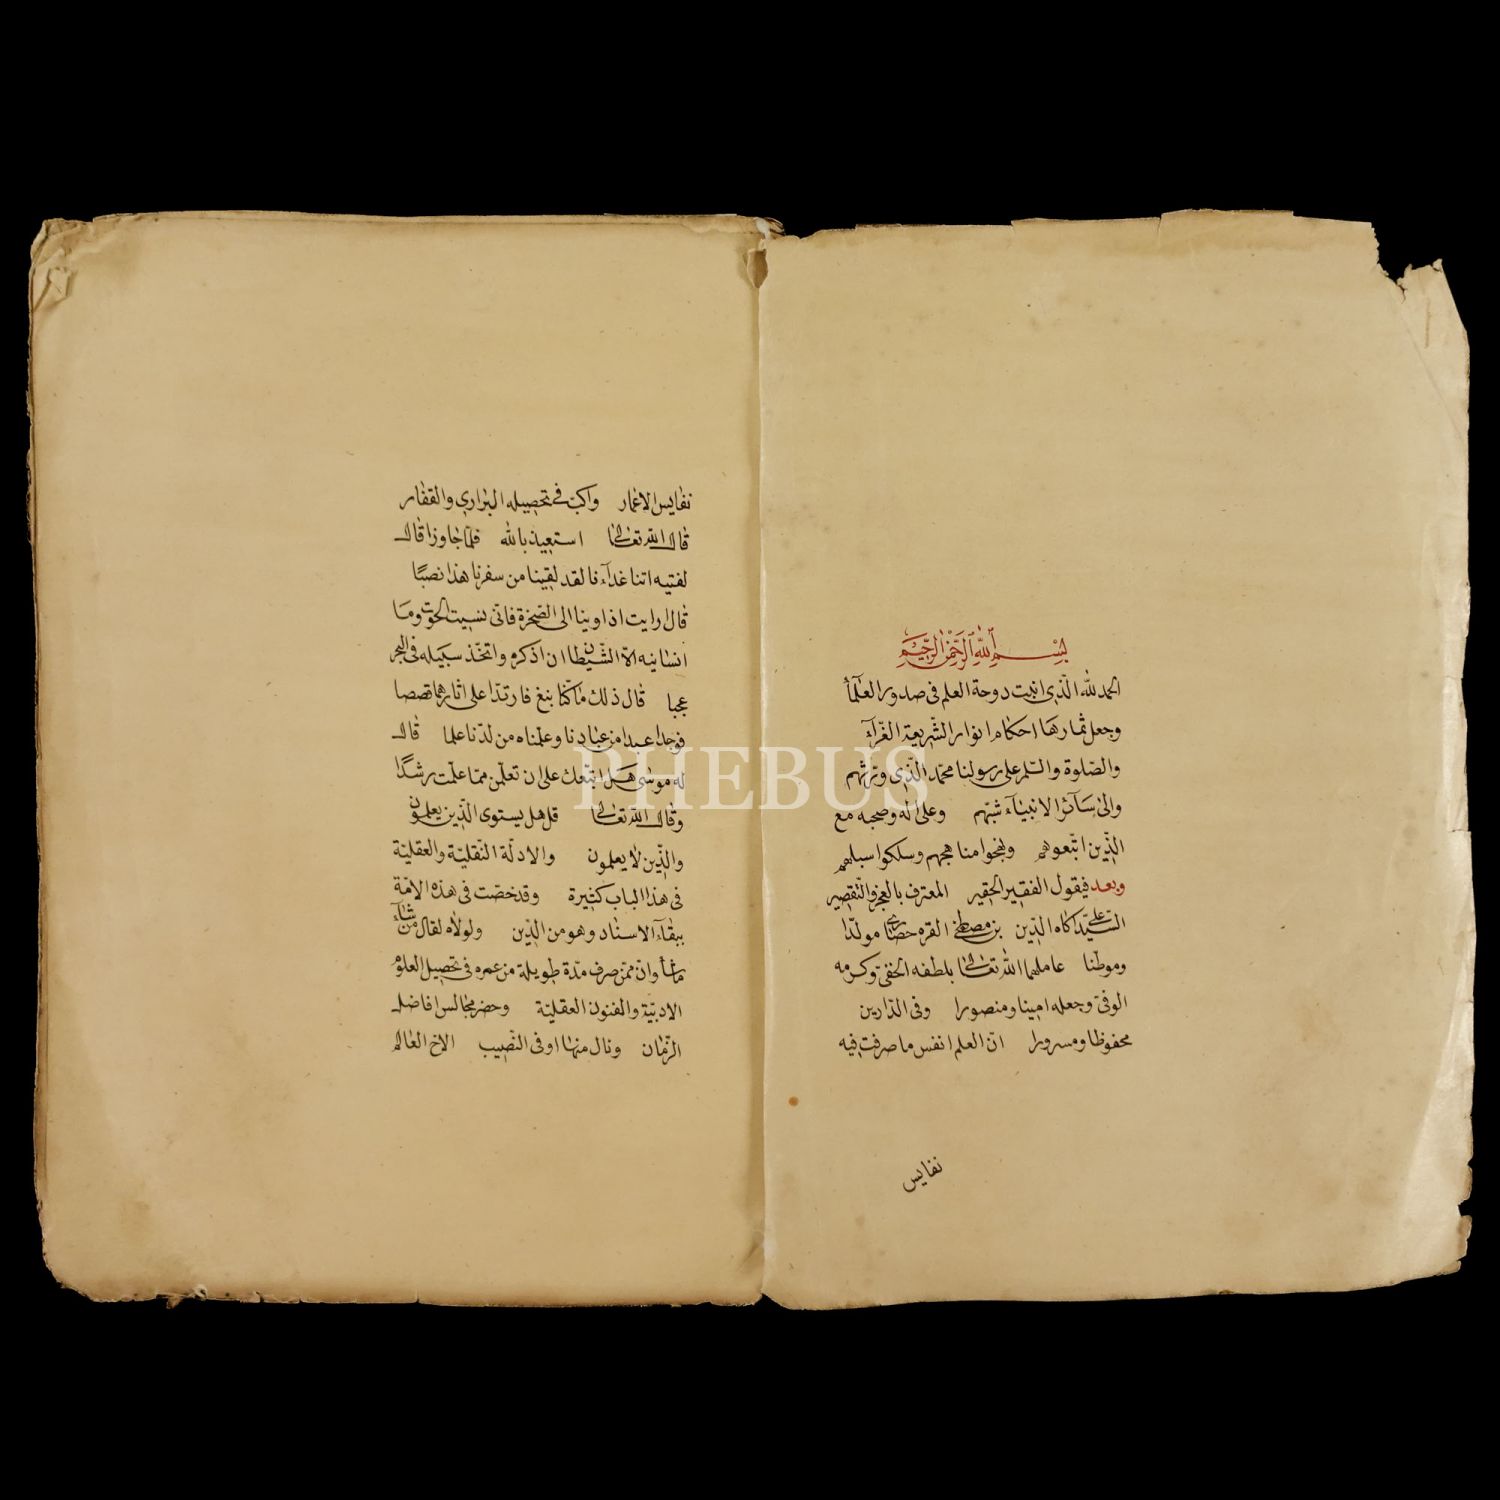 بِسْمِ ٱللّٰهِ ٱلرَّحْمٰنِ ٱلرَّحِيمِ
الحمد لله الّذي انبت دوحة العلم فى صدور العلمآ
وجعل ثمارها احكام انوار الشّريعة الغرّآء
والصّلوة والسّلم على رسولنا محمّد الّذى ورّثهم
والى سآئر الانبيآء شبّههم وعلى آله وصحبه مع
الّذين اتّبعوهم ونهجوا مناهجهم وسلكوا سبلهم
وبعد فيقول الفقير الحقير المعترف بالعجز والتّقصير
السّيّد على آكاه الدّين بن مصطفى القره حصارى مولدا
وموطنا عاملهما الله تعالى بلطفه الخفىّ وكرمه
الوفىّ وجعله امينا ومنصورا وفى الدّارين
محفوظا ومسرورا انّ العلم انفس ما صرفت فيه
نفايس
نفايس الاعمار واكبّ فى تحصيله البرارى والقفار
قال الله تعالى استعيذ بالله فلمّا جاوزا قال
لفتيه اتنا غدآءنا لقد لقينا من سفرنا هذا نصبًا
قال ارايت اذ اوينا الى الصّخرة فانّى نسيت الحوت وما
انسانيه الّا الشّيطان ان اذكره واتّخذ سبيله فى البحر
عجبا قال ذلك ما كنّا نبغ فارتدّا على اثارهما قصصا
فوجدا عبدا من عبادنا وعلّمناه من لدنّا علما قال
له موسى هل اتّبعك على ان تعلّمن ممّا علّمت رشدًا
وقال الله تعالى قل هل يستوى الّذين يعلمون
والّذين لا يعلمون والادلّة النّقليّة والعقليّة
فى هذا الباب كثيرة وقد خصّت فى هذه الامّة
ببقآء الاسناد وهو من الدّين ولولاه لقال من شآء
ما شآء وانّ ممّن صرف مدّة طويلة من عمره فى تحصيل العلوم
الادبيّة والفنون العقليّة وحضر مجالس افاضل
الزّمان ونال منها اوفى النّصيب الاخ العالم
PHEBUS